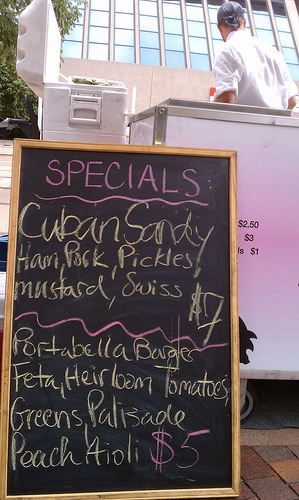 SPECIALS
Cuban Sandy
Ham, Pork, Pickles,
mustard, Swiss $7
Portabella Burger
Feta, Heirloom Tomatoes,
Greens, Palisade
Peach Aioli $5
$2.50
$3
ls $1